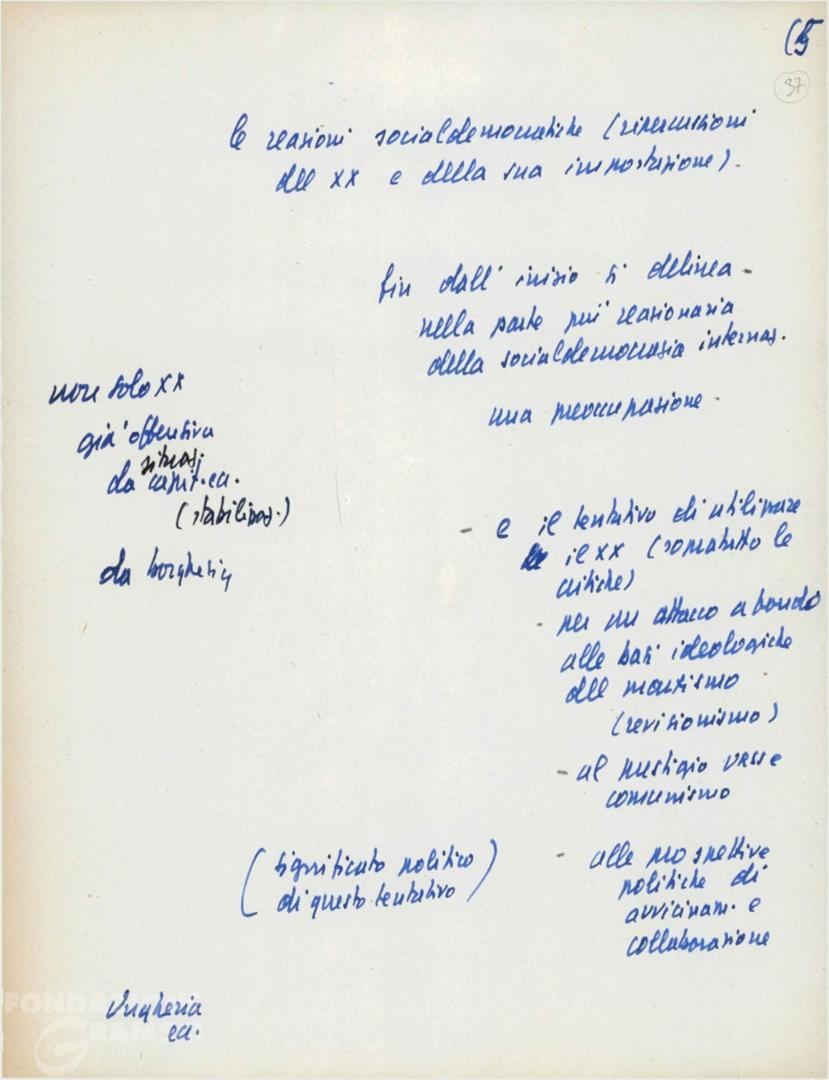 (5
37
le reazioni socialdemocratiche (ripercussioni
del XX e della sua impostazione).
fin dall'inizio si delinea -
nella parte più reazionaria
della socialdemocrazia internaz.
una preoccupazione -
non solo XX
già offensiva
da situaz.
capit. ecc.
(stabilizzaz.)
da borghesia
- e il tentativo di utilizzare
il XX (soprattutto le
critiche)
- per un attacco a fondo
alle basi ideologiche
del marxismo
(revisionismo)
- al prestigio URSS e
comunismo
- alle prospettive
politiche di
avvicinam. e
collaborazione
(significato politico
di questo tentativo)
Ungheria
ecc.
FONDAZIONE
GRAMSCI